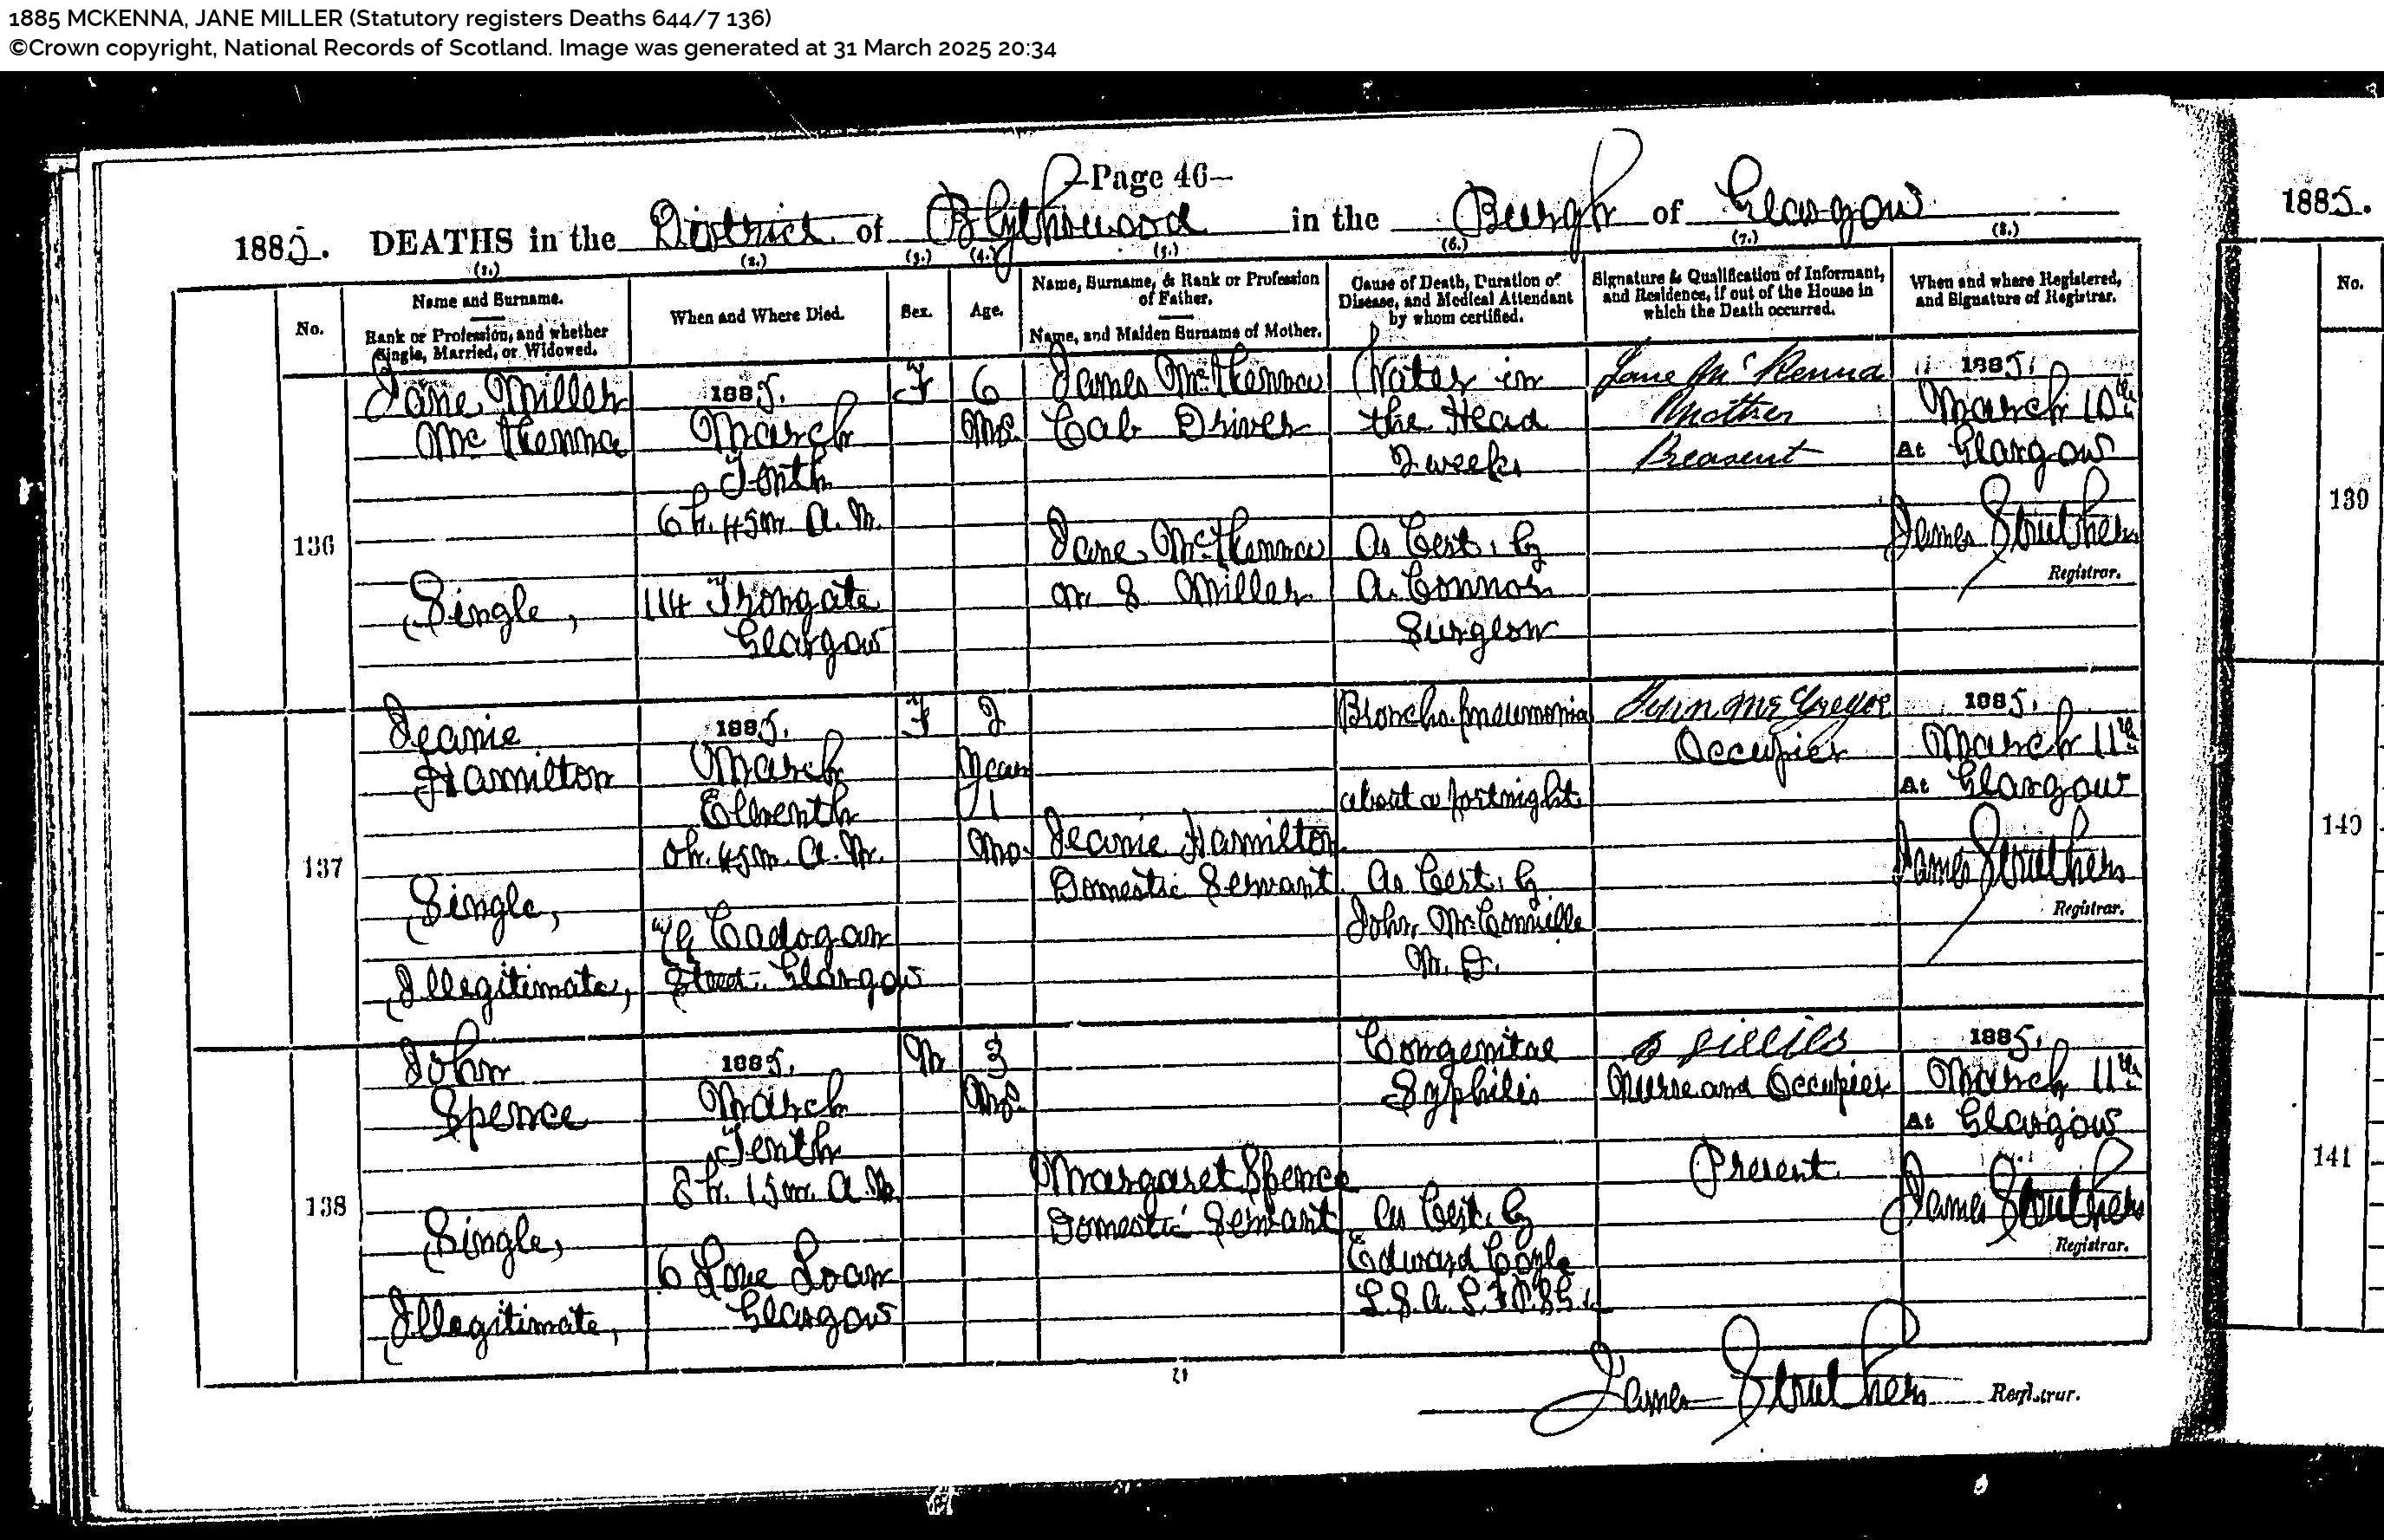 1885 MCKENNA, JANE MILLER (Statutory registers Deaths 644/7 136)
©Crown copyright, National Records of Scotland. Image was generated at 31 March 2025 20:34
—Page 46—
1885. DEATHS in the District of Blythswood in the Burgh of Glasgow
(1.) (2.) (3.) (4.) (5.) (6.) (7.) (8.)
No.
Name and Surname.
Rank or Profession, and whether
Single, Married, or Widowed.
When and Where Died.
Sex.
Age.
Name, Surname, & Rank or Profession
of Father.
Name, and Maiden Surname of Mother.
Cause of Death, Duration of
Disease, and Medical Attendant
by whom certified.
Signature & Qualification of Informant,
and Residence, if out of the House in
which the Death occurred.
When and where Registered,
and Signature of Registrar.
136
Jane Miller
McKenna
(Single,)
1885.
March
Tenth
6 h. 45 m. A. M.
114 Trongate
Glasgow
F
6
Mos.
James McKenna
Cab Driver
Jane McKenna
m. S. Miller
Water in
the Head
2 weeks
As Cert. by
A. Connor
Surgeon
Jane McKenna
Mother
Preasent
1885.
March 10th
At Glasgow
James Struthers
Registrar.
137
Jeanie
Hamilton
(Single,)
(Illegitimate,)
1885.
March
Eleventh
0 h. 45 m. A. M.
Cadogan
Street. Glasgow
F
2
Years
1
Mo.
Jeanie Hamilton
Domestic Servant
Broncho-pneumonia
about a fortnight
As Cert. by
John McConville
M. D.
John McGregor
Occupier
1885.
March 11th
At Glasgow
James Struthers
Registrar.
138
John
Spence
(Single,)
(Illegitimate,)
1885.
March
Tenth
8 h. 15 m. A. M.
6 Love Loan
Glasgow
M
3
Mos.
Margaret Spence
Domestic Servant
Congenital
Syphilis
As Cert. by
Edward Coyle
L.S.A. L.F.P.S.G.
Gillies
Nurse and Occupier
Present
1885.
March 11th
At Glasgow
James Struthers
Registrar.
James Struthers Registrar.
1885.
No.
139
140
141